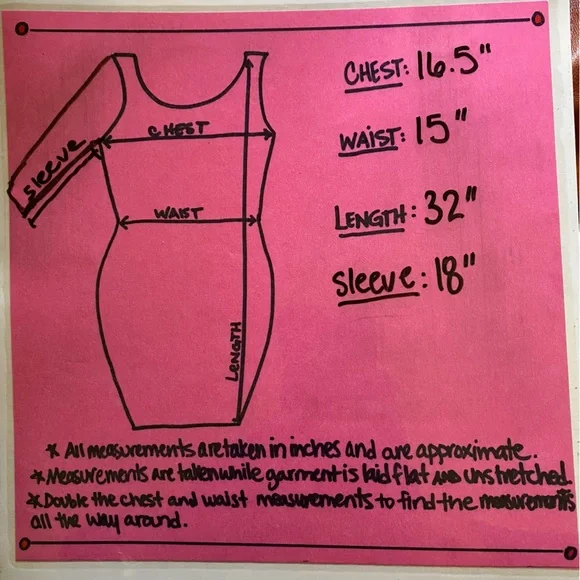 CHEST: 16.5"
WAIST: 15"
LENGTH: 32"
Sleeve: 18"
Sleeve
CHEST
WAIST
LENGTH
* All measurements are taken in inches and are approximate.
* Measurements are taken while garment is laid flat AND unstretched.
* Double the chest and waist measurements to find the measurements
all the way around.